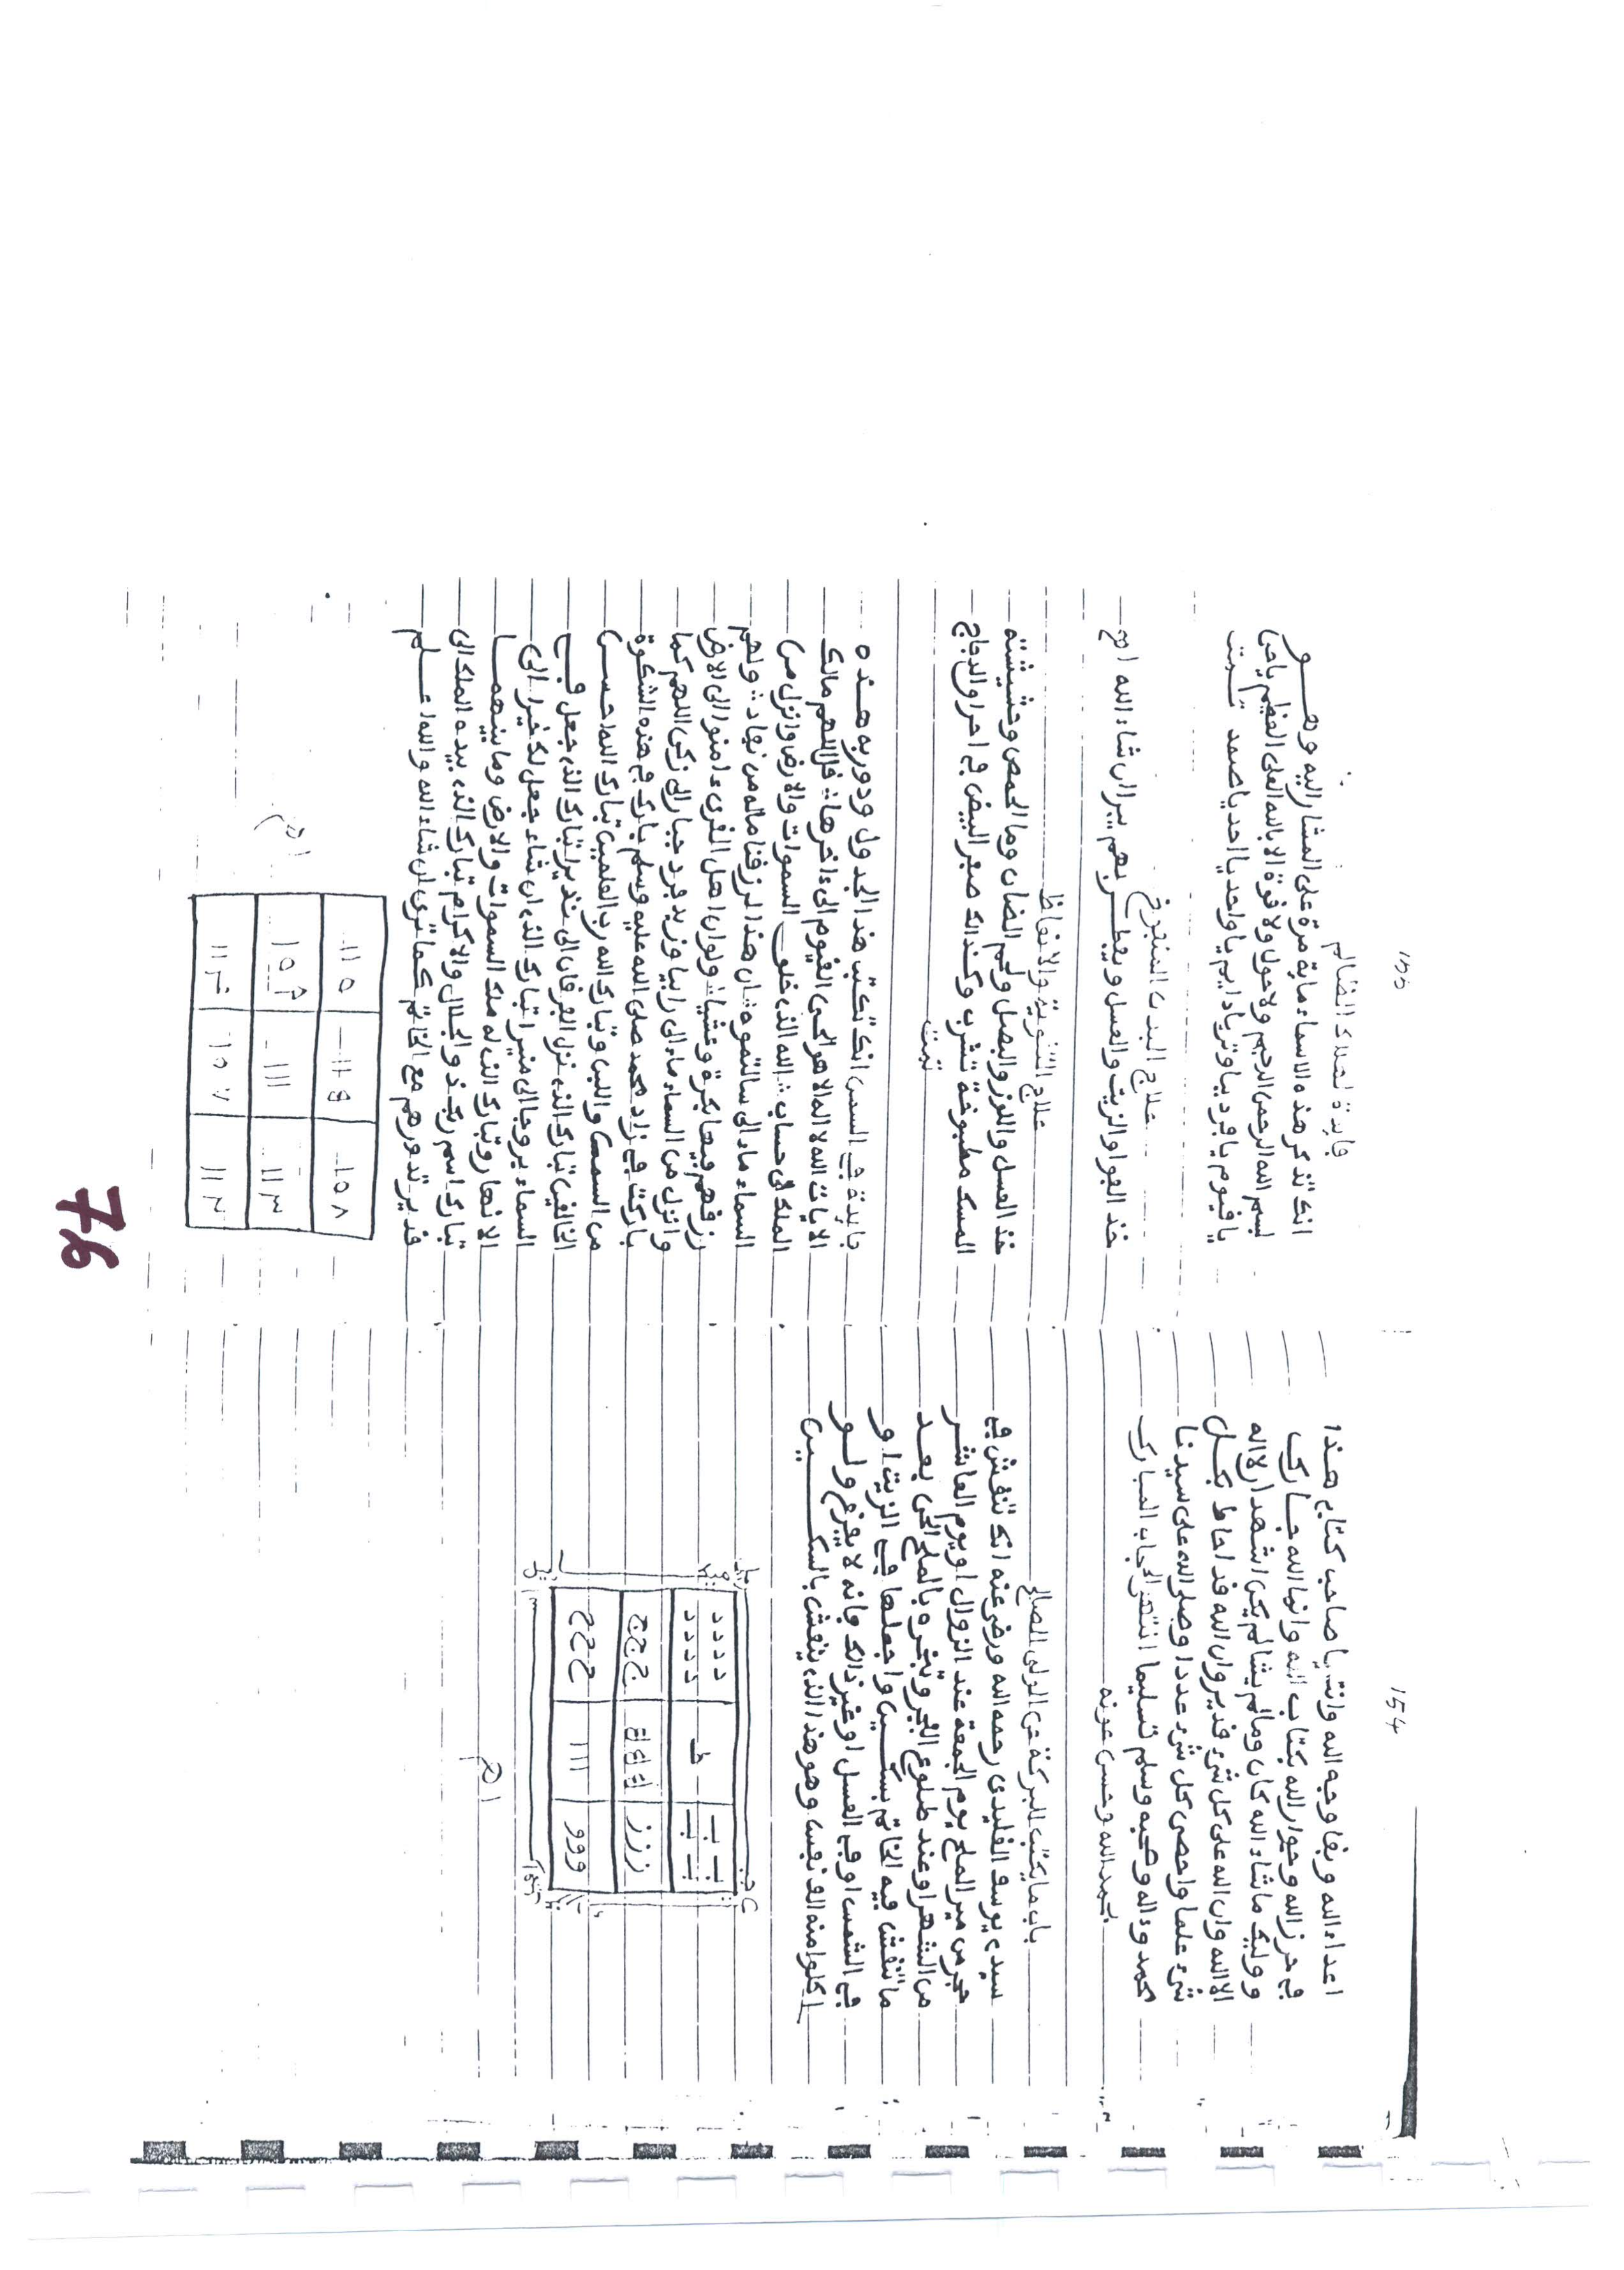 154
اعداء الله وبقا وجه الله وانت يا صاحب كتابي هذا
في حرز الله وجوار الله بكتاب الله وانبيا الله جارك
ووليك ما شاء الله كان وما لم يشا لم يكن اشهد ان لا اله
الا الله وان الله على كل شيء قدير وان الله قد احاط بكل
شيء علما واحصى كل شيء عددا وصلى الله على سيدنا
محمد وءاله وصحبه وسلم تسليما انتهى الحجاب المبارك
بحمد الله وحسن عونه
باب ما يكتب للبركة عن الولى الصالح
سيدي يوسف القليدي رحمه الله ورضي عنه انك تنقش في
حجر من الملح يوم الجمعة عند الزوال او يوم العاشر
من الشهر او عند طلوع الفجر وتبخره بالملح الحي بعد
ما تنقش فيه الخاتم بسكين واجعلها في الزيت او
في الشمس او في العسل او غير ذالك فانه لا يفرغ ولو
اكلوا منه الف نفس وهو هذا الذي ينقش بالسكين
د د د د د د د د
ط
ب ب ب ب
ج ج ج
ه ه ه
ز ز ز
ح ح ح
ا ا ا
و و و
اه
155
فايدة لهلاك الظالم
انك تذكر هذه الاسماء ماية مرة على المشار اليه وهو
بسم الله الرحمن الرحيم ولا حول ولا قوة الا بالله العلى العظيم يا حي
يا قيوم يا فرد يا وتر يا دايم يا واحد يا احد يا صمد تمت
علاج البدن
خذ الفوا والزيت والعسل ويفطر بهم يبرا ان شاء الله اه
علاج التقوية والانعاظ
خذ العسل واللوز والبصل ولحم الضان وما الحمص وحشيشة
المسك مطبوخة تشرب وكذالك صفر البيض في احرار الدجاج
تمت
فايدة في السمن انك تكتب هذا الجدول ودور به هذه
الايات الله لا اله الا هو الحى القيوم الى ءاخرها قل اللهم مالك
الملك الى حساب الله الذي خلق السموات والارض وانزل من
السماء ماء الى سالتموه ان هذا لرزقنا ماله من نفاد ولهم
رزقهم فيها بكرة وعشيا ولو ان اهل القرى ءامنوا الى الارض
وانزل من السماء ماء الى رابيا وزيد بزد جبار الى زكى اللهم كما
باركت في زاد محمد صلى الله عليه وسلم بارك في هذه الشكوة
من السمن واللبن وتبارك الله رب العلمين تبارك الله احسن
الخالقين تبارك الذي نزل الفرقان الى نذيرا تبارك الذي جعل في
السماء بروجا الى منيرا تبارك الذي ان شاء جعل لك خيرا الى
الانهار وتبارك الذي له ملك السموات والارض وما بينهما
تبارك اسم ربك ذو الجلال والاكرام تبارك الذي بيده الملك الى
قدير تدورهم مع الخاتم كما ترى ان شاء الله والله اعلم
اه
76